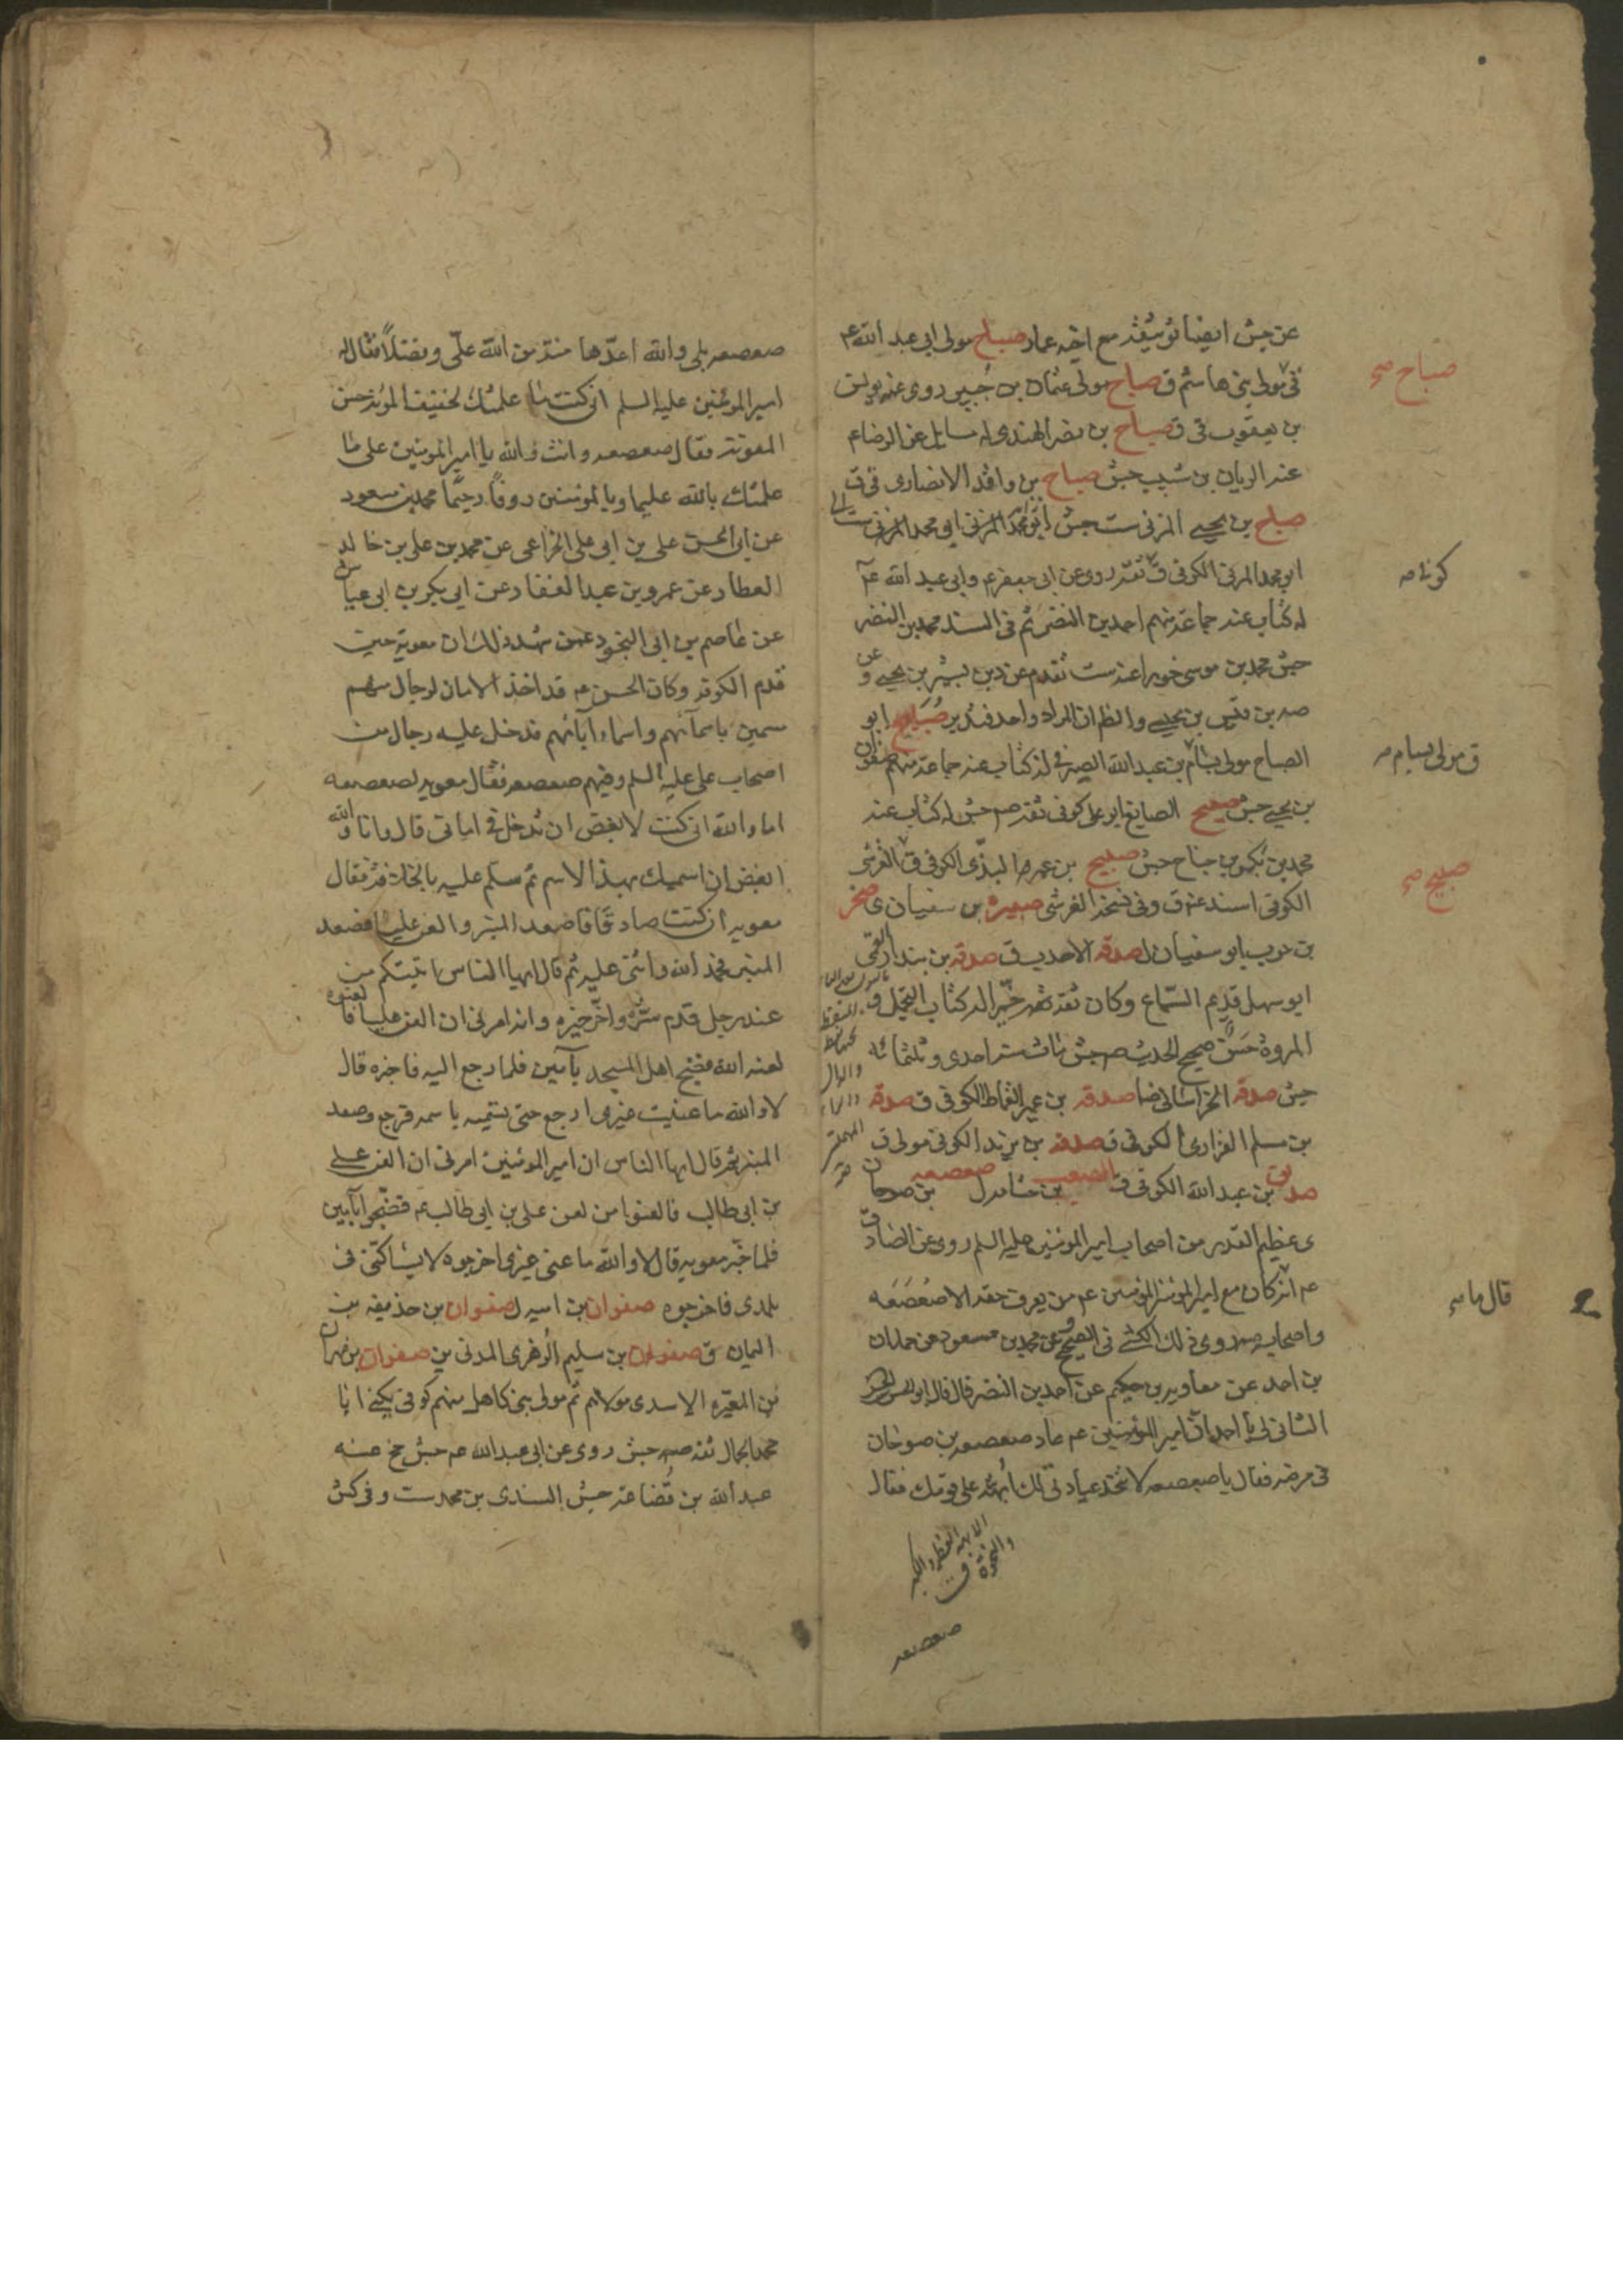 عن جش ايضا توثيقه مع اخيه عمار صباح مولى ابي عبد الله ع
ق مولى بني هاشم ق صباح مولى عثمان بن جبير روى عنه يونس
بن يعقوب ق ق صباح بن نضر الهندي له مسايل عن الرضا ع
عنه الريان بن شبيب جش صباح بن واقد الانصاري ق ق
صباح بن يحيى المزني ست جش ابو محمد المزني
ابو محمد المزني الكوفي ق ثقة روى عن ابي جعفر ع وابي عبد الله ع
له كتاب عنه جماعة منهم احمد بن النضر ثم في السند محمد بن النضر
جش محمد بن موسى خوراء عنه ست تقدم عن بشير بن يحيى و
بن قيس بن يحيى والظاهران المراد واحد فتدبر صبيح ابو
الصباح مولى بسام بن عبد الله الصيرفي له كتاب عنه جماعة منهم صفوان
بن يحيى جش صبيح الصايغ ابو علي كوفي ثقة صه جش له كتاب عنه
محمد بن بكر بن جناح جش صبيح بن عمرو الكوفي ق القرشي
الكوفي اسند عنه ق وفي نسخة القرشي صبيرة بن سفيان ى صخر
بن حرب ابو سفيان ل صدقة الاحدب ق صدقة بن بندار القمي
ابو سهل قديم السماع وكان ثقة خيرا له كتاب التجمل و
المروة حسن صحيح الحديث صه جش مات سنة احدى وثلثمائة
جش صدقة الخراساني ضا صدقة بن عمير القماط الكوفي ق صدقة
بن مسلم الفزاري الكوفي ق صدقة بن يزيد الكوفي مولى ق
صديق بن عبد الله الكوفي ق الصعب بن جثامة ل صعصعه بن صوحان
ى عظيم القدر من اصحاب امير المؤمنين عليه السلم روى عن الصادق
ع انه كان مع امير المؤمنين ع من يعرف حقه الا صعصعه
واصحابه صه روى ذلك الكشي في الصحيح عن محمد بن مسعود عن حمدان
بن احمد عن معاوية بن حكيم عن احمد بن النضر قال قال ابو الحسن
الثاني لي يا احمد ان امير المؤمنين ع عاد صعصعه بن صوحان
في مرضه فقال يا صعصعه لا تتخذ عيادتي لك ابهة على قومك فقال
صعصعه
صباح صح
كوفي صه
ق مولى بسام صه
صبيح صح
قال ما صح
صعصعه بلى والله اعدها منة من الله علي وفضلا فقال له
امير المؤمنين عليه السلم اني كنت ما علمتك لخفيف المؤنة حسن
المعونة فقال صعصعه وانت والله يا امير المومنين على ما
علمتك بالله عليما وبالمؤمنين رؤفا رحيما محمد بن مسعود
عن ابي الحسن علي بن ابي علي الخزاعي عن محمد بن علي بن خالد
العطار عن عمرو بن عبد الغفار عن ابي بكر بن ابي عياش
عن عاصم بن ابي النجود عمن شهد ذلك ان معوية حين
قدم الكوفة وكان الحسن ع قد اخذ الامان لرجال منهم
مسمين باسمائهم واسماء ابائهم فدخل عليه رجال من
اصحاب علي عليه السلم وفيهم صعصعه فقال معويه لصعصعه
اما والله اني كنت لابغض ان تدخل في اماني قال وانا والله
ابغض ان اسميك بهذا الاسم ثم سلم عليه بالخلافة فقال
معويه ان كنت صادقا فاصعد المنبر والعن عليا فصعد
المنبر فحمد الله واثنى عليه ثم قال ايها الناس اتيتكم من
عند رجل قدم شره واخر خيره وانه امرني ان العن عليا فالعنوه
لعنه الله فضج اهل المسجد بآمين فلما رجع اليه فاخبره قال
لا والله ما عنيت غيري ارجع حتى تسميه باسمه فرجع وصعد
المنبر ثم قال ايها الناس ان امير المومنين امرني ان العن علي
بن ابي طالب فالعنوا من لعن علي بن ابي طالب ع فضجوا بآمين
فلما خبر معويه قال لا والله ما عنى غيري اخرجوه لا يساكنني في
بلدي فاخرجوه صفوان بن اميه ل صفوان بن حذيفه بن
اليمان ى صفوان بن سليم الزهري المدني ين صفوان بن مهران
بن المغيرة الاسدي مولاهم ثم مولى بني كاهل منهم كوفي يكنى ابا
محمد الجمال ثقة صه جش روى عن ابي عبد الله ع جش مخ عنه
عبد الله بن قضاعة جش السندي بن محمد ست وفي كش